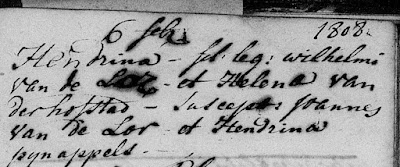 6 feb: 1808.
Hendrina - fil: leg: wilhelmi
van de Lor et Helena van
der hofstad - susceper: Joannes
van de Lor et Hendrina
pynappels -